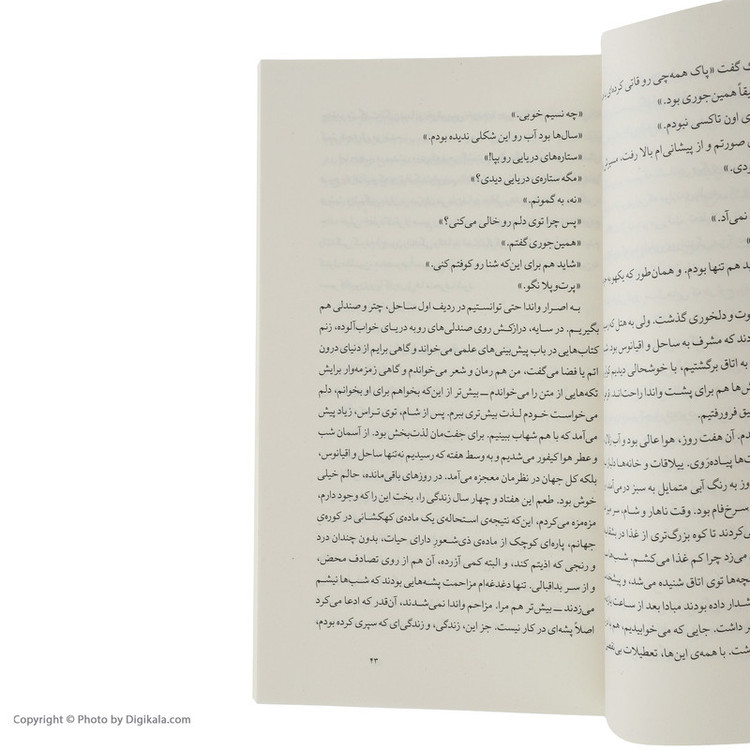 ک گفت «پاک همه‌چی رو قاتی کرده‌ای
یقاً همین‌جوری بود.»
ی اون تاکسی نبودم.»
صورتم و از پیشانی‌ام بالا رفت،
ردی.»
نمی‌آد.»
»
ید هم تنها بودم. و همان‌طور که
وت و دلخوری گذشت. ولی به هتل که
دند که مشرف به ساحل و اقیانوس بود
به اتاق برگشتیم، با خوشحالی دیدیم
ش‌ها هم برای پشت واندا راحت‌اند.
یق فرورفتیم.
دم. آن هفت روز، هوا عالی بود و آب
ت‌ها پیاده‌رَوی. ییلاقات و خانه‌ها
وز به رنگ آبی متمایل به سبز درمی‌آمد
سرخ‌فام بود. وقت ناهار و شام،
ی‌کردند تا کوه بزرگ‌تری از غذا در
می‌زد چرا کم غذا می‌کشم.
چه‌ها توی اتاق شنیده می‌شد، و
شدار داده بودند مبادا بعد از ساعت
ر داشت. جایی که می‌خوابیدیم،
شت. با همه‌ی این‌ها، تعطیلات
«چه نسیم خوبی.»
«سال‌ها بود آب رو این شکلی ندیده بودم.»
«ستاره‌های دریایی رو بپا!»
«مگه ستاره‌ی دریایی دیدی؟»
«نه، به گمونم.»
«پس چرا توی دلم رو خالی می‌کنی؟»
«همین‌جوری گفتم.»
«شاید هم برای این‌که شنا رو کوفتم کنی.»
«پرت‌وپلا نگو.»
به اصرار واندا حتی توانستیم در ردیف اول ساحل، چتر و صندلی هم
بگیریم. در سایه، درازکش روی صندلی‌های رو به دریای خواب‌آلوده، زنم
کتاب‌هایی در باب پیش‌بینی‌های علمی می‌خواند و گاهی برایم از دنیای درون
اتم یا فضا می‌گفت، من هم رمان و شعر می‌خواندم و گاهی زمزمه‌وار برایش
تکه‌هایی از متن را می‌خواندم ــ بیش‌تر از این‌که بخواهم برای او بخوانم، دلم
می‌خواست خودم لذت بیش‌تری ببرم. پس از شام، توی تراس، زیاد پیش
می‌آمد که با هم شهاب ببینیم. برای جفت‌مان لذت‌بخش بود. از آسمان شب
و عطر هوا کیفور می‌شدیم و به وسط هفته که رسیدیم نه‌تنها ساحل و اقیانوس،
بلکه کل جهان در نظرمان معجزه می‌آمد. در روزهای باقی‌مانده، حالم خیلی
خوش بود. طعم این هفتاد و چهار سال زندگی را، بخت این را که وجود دارم،
مزه‌مزه می‌کردم، این‌که نتیجه‌ی استحاله‌ی یک ماده‌ی کهکشانی در کوره‌ی
جهانم، پاره‌ای کوچک از ماده‌ی ذی‌شعورِ دارای حیات، بدون چندان درد
و رنجی که اذیتم کند، و البته کمی آزرده، آن هم از روی تصادف محض،
و از سر بداقبالی. تنها دغدغه‌ام مزاحمت پشه‌هایی بودند که شب‌ها نیشم
می‌زدند ــ بیش‌تر هم مرا. مزاحم واندا نمی‌شدند، آن‌قدر که ادعا می‌کرد
اصلاً پشه‌ای در کار نیست. جز این، زندگی، و زندگی‌ای که سپری کرده بودم،
۴۳
Copyright © Photo by Digikala.com